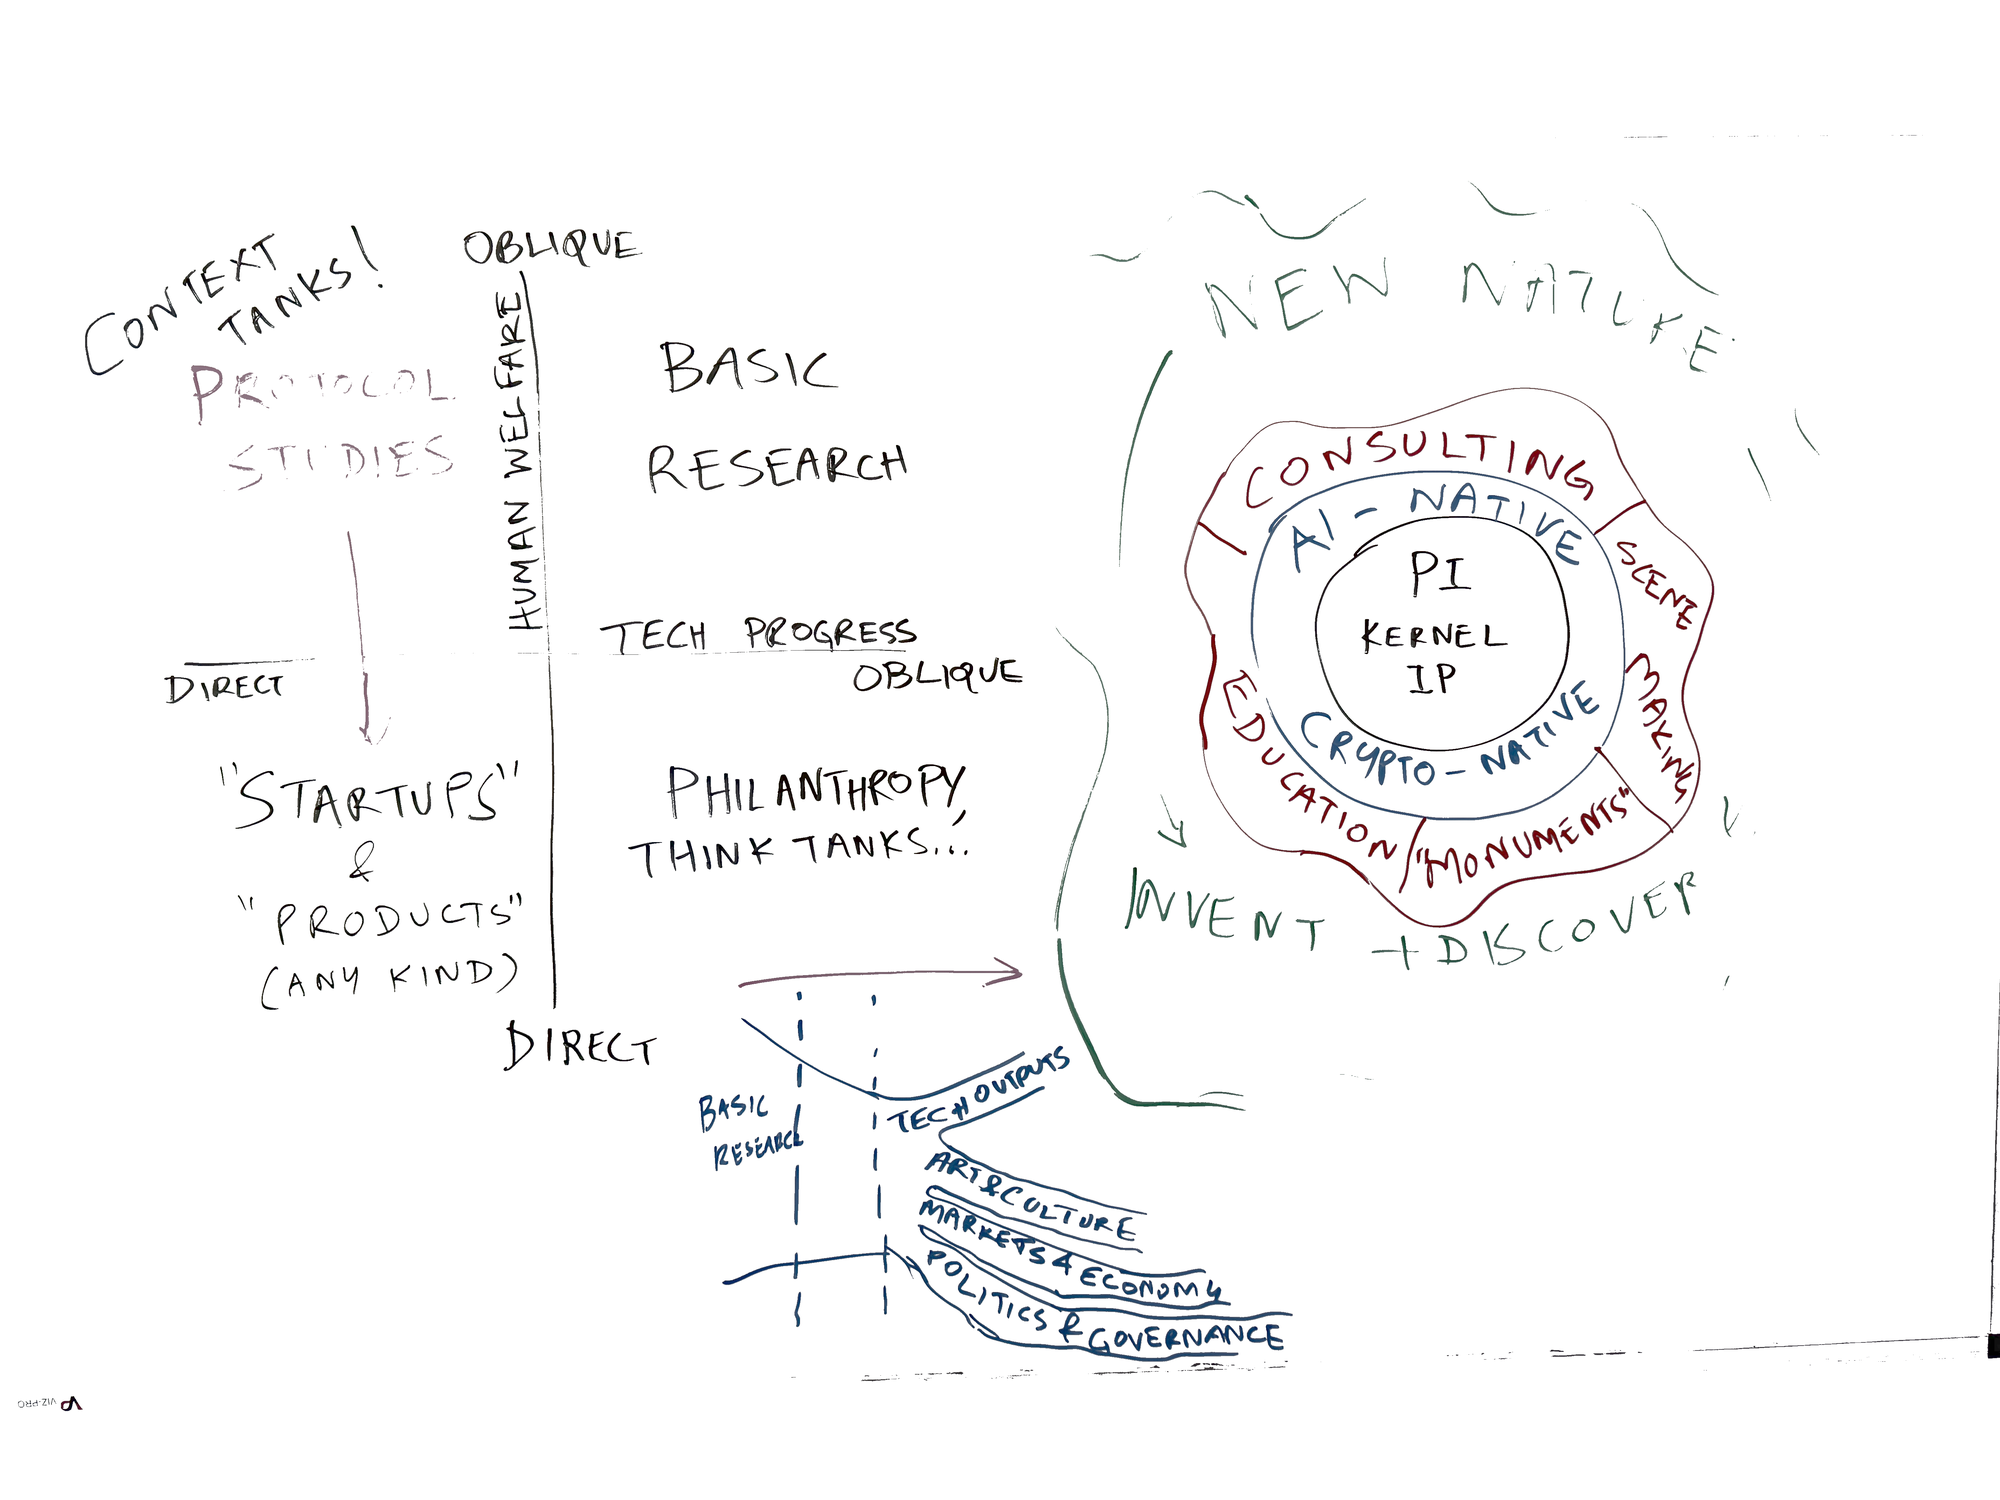 CONTEXT
TANKS!
PROTOCOL
STUDIES
OBLIQUE
HUMAN WELFARE
BASIC
RESEARCH
TECH PROGRESS
OBLIQUE
DIRECT
"STARTUPS"
&
"PRODUCTS"
(ANY KIND)
PHILANTHROPY,
THINK TANKS...
DIRECT
BASIC
RESEARCH
TECH OUTPUTS
ART & CULTURE
MARKETS & ECONOMY
POLITICS & GOVERNANCE
NEW NATURE
CONSULTING
AI-NATIVE
PI
KERNEL
IP
CRYPTO-NATIVE
SCENE
MAKING
EDUCATION
"MONUMENTS"
INVENT + DISCOVER
VIZ-PRO